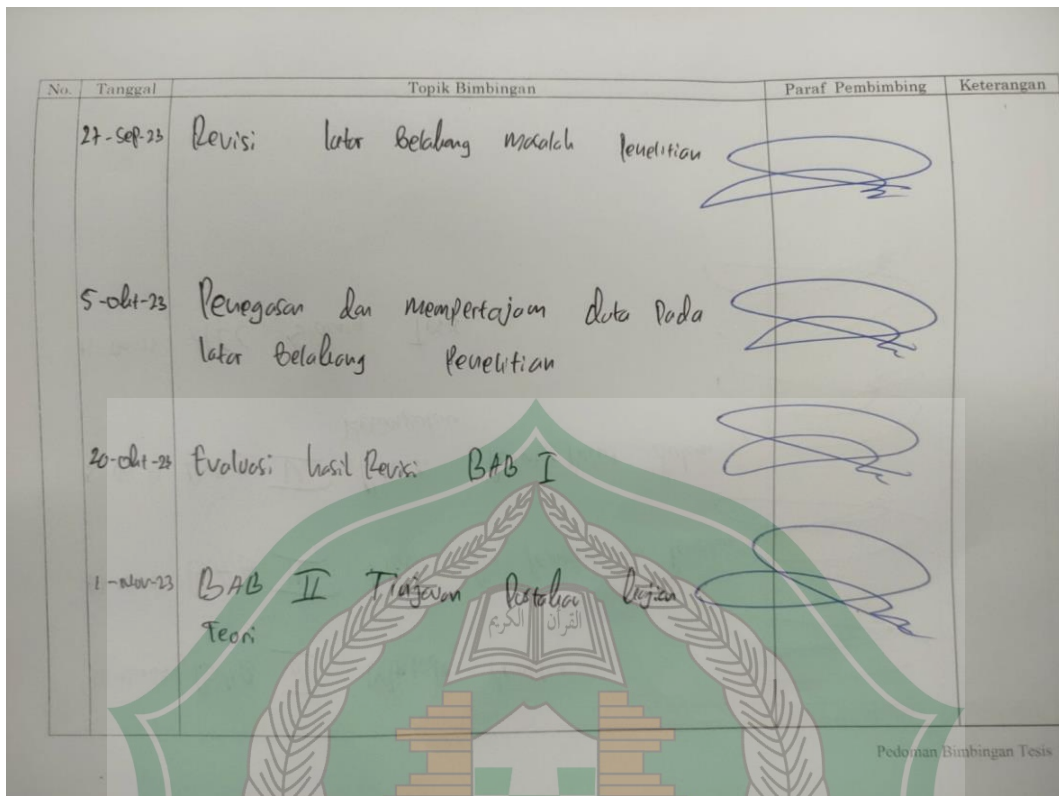 No. Tanggal Topik Bimbingan Paraf Pembimbing Keterangan
27-Sep-23 Revisi latar Belakang masalah Penelitian
5-okt-23 Penegasan dan mempertajam data Pada
latar Belakang Penelitian
20-okt-23 Evaluasi hasil Revisi BAB I
1-Nov-23 BAB II Tinjauan Pustaka kajian
Teori
القرآن الكريم
Pedoman Bimbingan Tesis